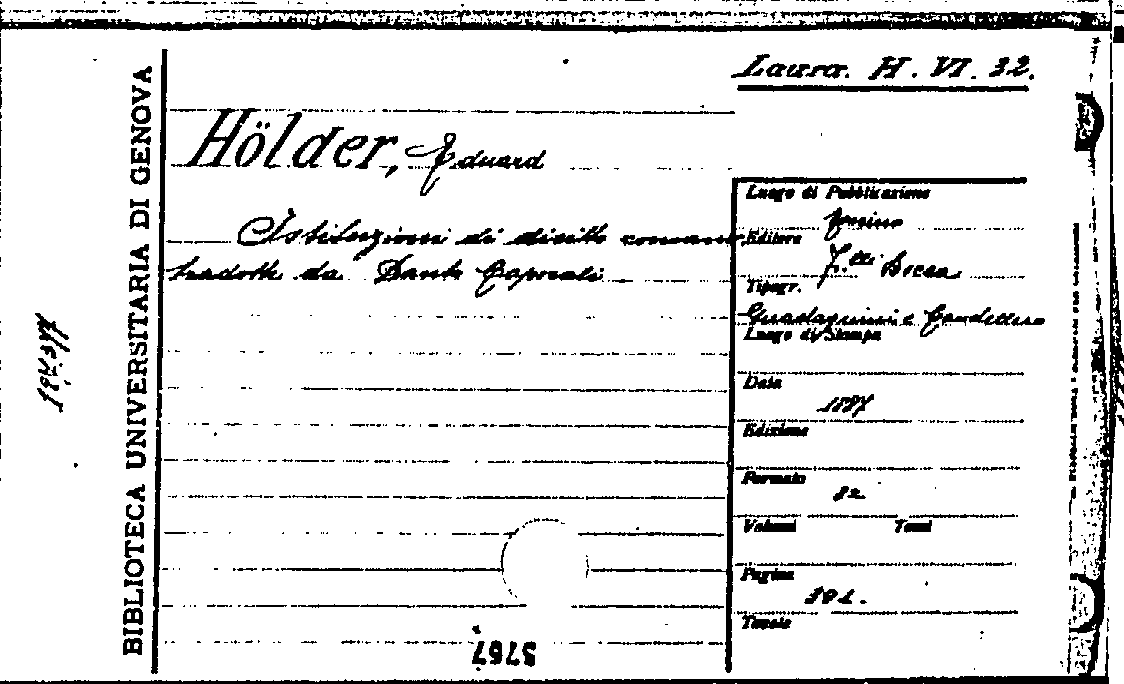 Laura. H. VI. 32.
BIBLIOTECA UNIVERSITARIA DI GENOVA
Hölder, Eduard
Istituzioni di diritto romano,
tradotte da Dante Caporali
Luogo di Pubblicazione
Torino
Editore
F.lli Bocca
Tipogr.
Guadagnini e Candellero
Luogo di Stampa
Data
1887
Edizione
Formato
Volumi Tomi
Pagine
Tavole
5767